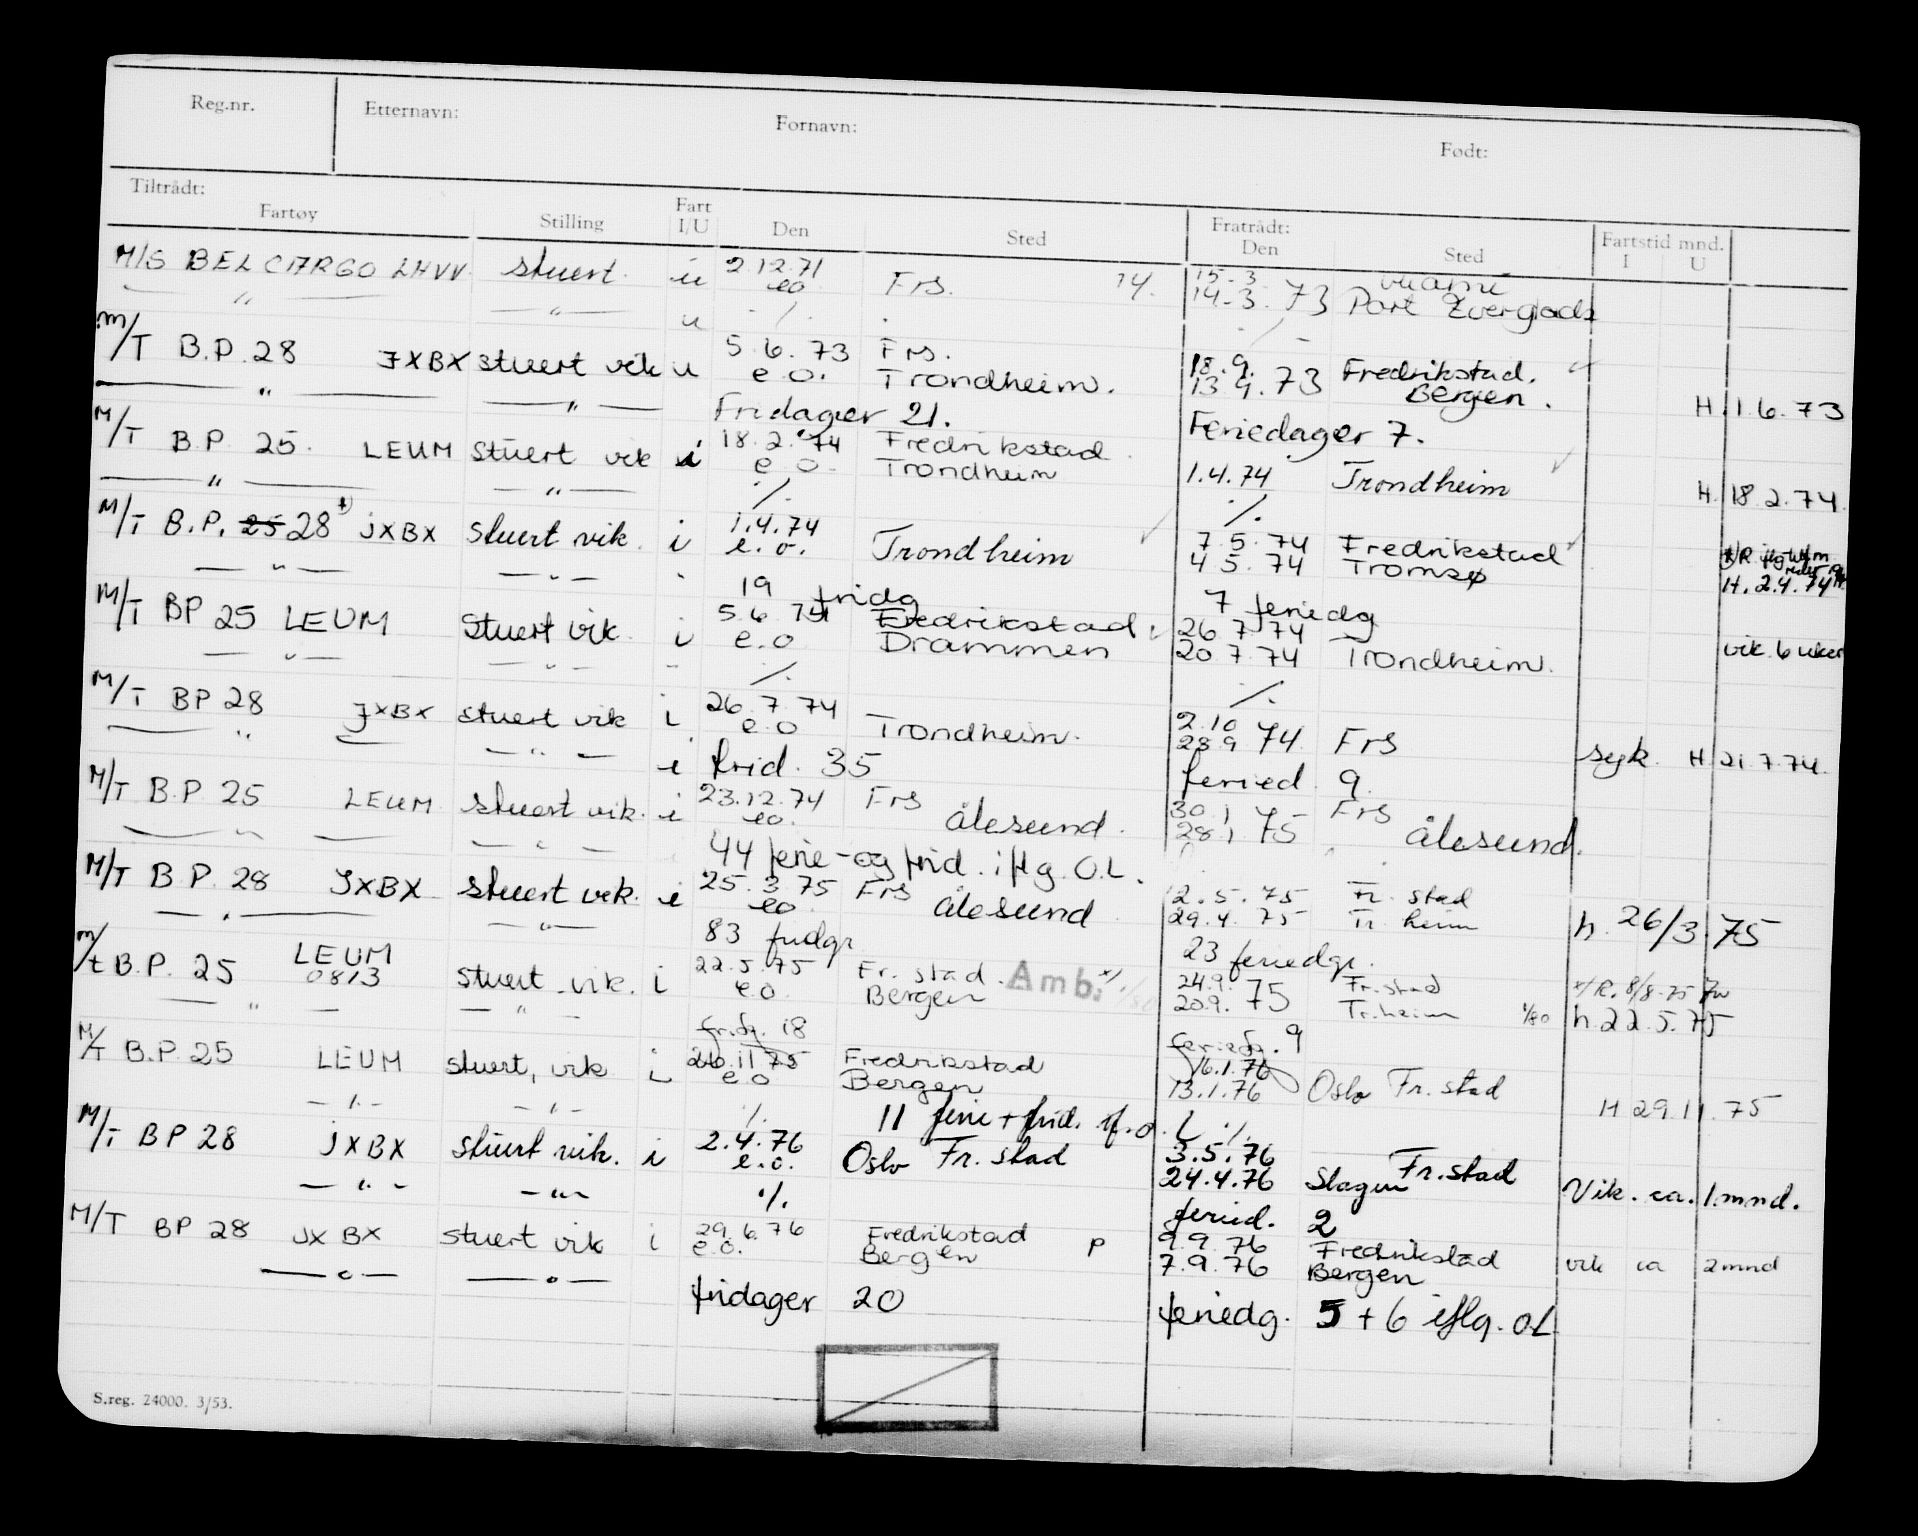 Reg.nr. Etternavn: Fornavn: Født:
Tiltrådt: Fratrådt: Fartstid mnd.
Fartøy Stilling Fart I/U Den Sted Den Sted I U
M/S BELCARGO LHVV stuert. u 2.12.71 Frs. 14. 15-3
— " — — " — u eo 14-3. 73 Port Everglads
M/T B.P. 28 JXBX stuert vik u 5.6.73 Frs. 18.9. Fredrikstad.
— " — — " — e.o. Trondheim. 13.9.73 Bergen.
Fridager 21. Feriedager 7. H. 1.6.73
M/T B.P. 25. LEUM stuert vik i 18.2.74 Fredrikstad
— " — — " — e.o. Trondheim 1.4.74 Trondheim H. 18.2.74.
./. ./.
M/T B.P. 25 28 x) JXBX stuert vik. i 1.4.74 7.5.74 Fredrikstad
— " — — " — e.o. Trondheim 4.5.74 Tromsø H. 2.4.74
19 fridg 7 feriedg
M/T BP 25 LEUM stuert vik. i 5.6.74 Fredrikstad. 26.7.74
— " — — " — e.o Drammen 20.7.74 Trondheim. vik. 6 uker
./. ./.
M/T BP 28 JXBX stuert vik i 26.7.74 2.10
— " — — " — e.o Trondheim. 28.9 74 Frs syk. H. 21.7.74.
frid. 35 feried. 9.
M/T B.P. 25 LEUM stuert vik. i 23.12.74 Frs 30.1 Frs
— " — — " — eo. ålesund. 28.1 75 ålesund.
44 ferie- og frid. iflg. O.L.
M/T B.P. 28 JXBX stuert vik. i 25.3.75 Frs 12.5.75 Fr. stad
— " — — " — eo. ålesund 29.4.75 Tr. heim h. 26/3 75
83 fridgr 23 feriedgr.
m/t B.P. 25 LEUM 0813 stuert vik. i 22.5.75 Fr. stad. Amb. 24.9. Fr. stad x/R. 8/8-75
— " — — " — e.o. Bergen 20.9. 75 Tr. heim 1/80 h. 22.5.75
fridg. 18 feriedg. 9
M/T B.P. 25 LEUM stuert, vik i 26.11.75 Fredrikstad 16.1.76
— " — — " — e.o Bergen 13.1.76 Oslo Fr. stad H 29.11.75
./. 11 ferie + frid. if. o.L ./.
M/T BP 28 JXBX stuert vik. i 2.4.76 3.5.76 Fr. stad
— " — — " — e.o. Oslo Fr. stad 24.4.76 Slagen Vik. ca. 1.mnd.
./. feried. 2
M/T BP 28 JXBX stuert vik i 29.6.76 Fredrikstad P 9.9.76 Fredrikstad
— " — — " — e.o. Bergen 7.9.76 Bergen vik ca 2 mnd
fridager 20 feriedg. 5 + 6 iflg. OL
S.reg. 24000. 3/53.